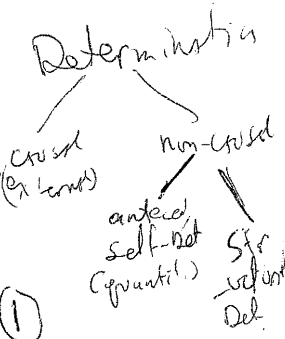 Determination
causal
(external)
non-causal
anteced.
Self-Det
(quantit.)
Str
Det.
1